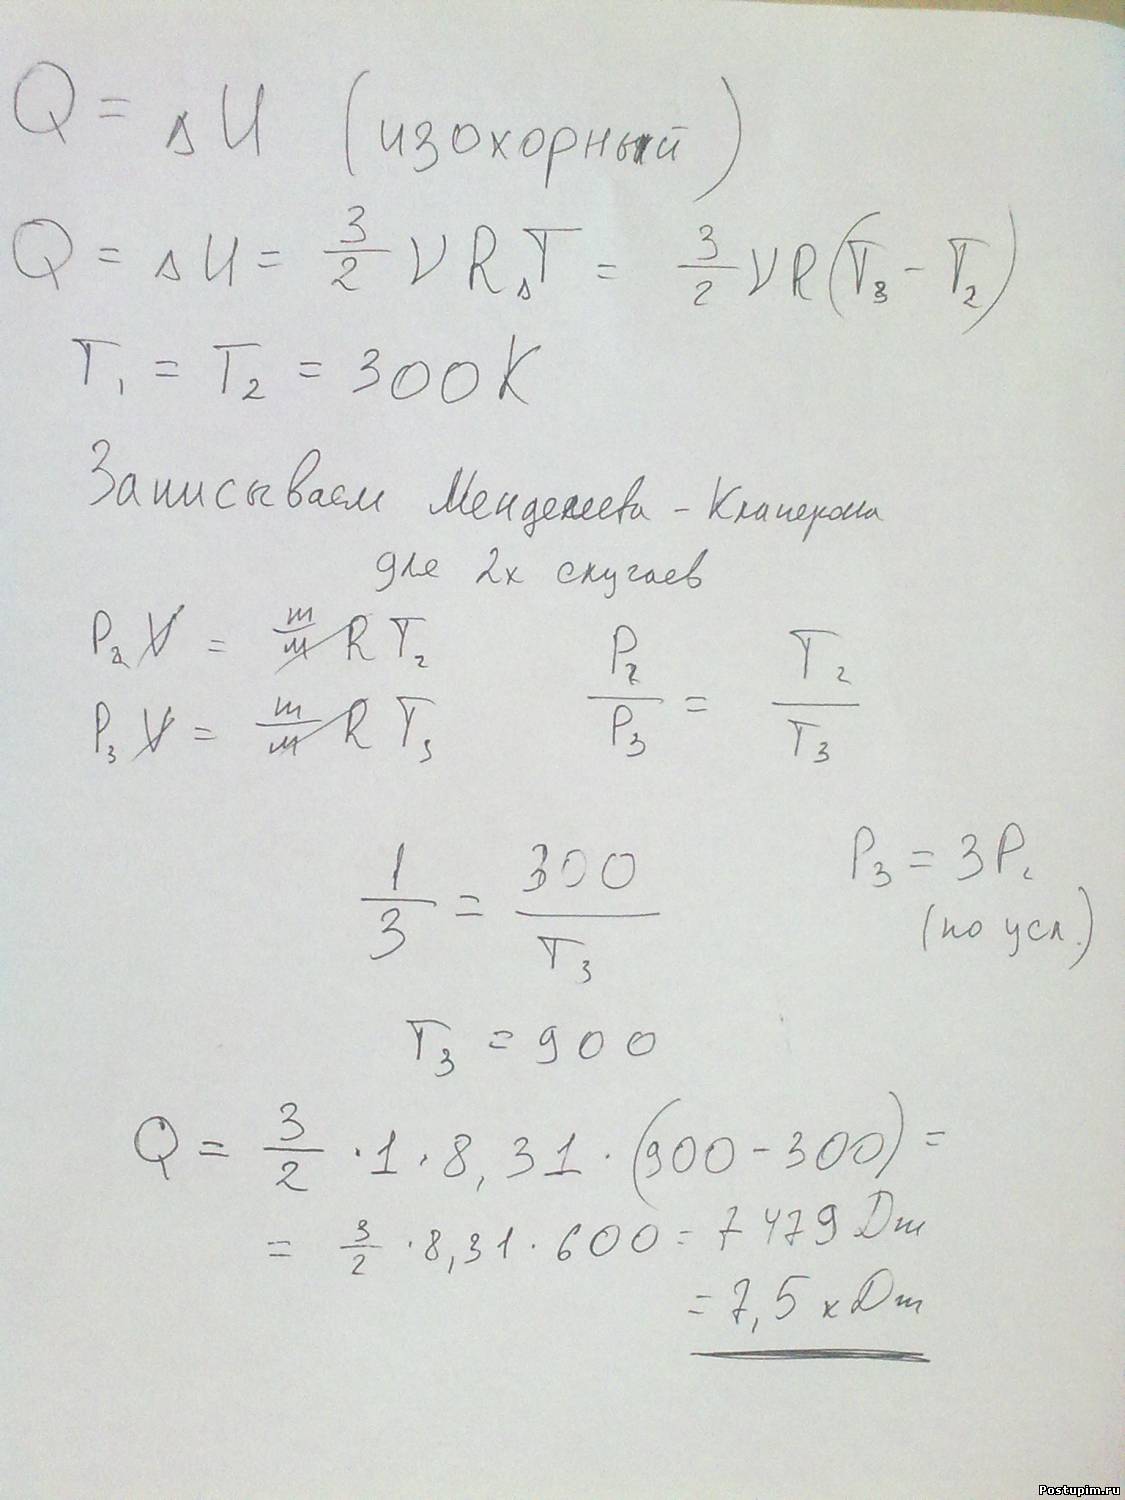 Q = ΔU (изохорный)
Q = ΔU = 3/2 ν R ΔT = 3/2 ν R (T₃ - T₂)
T₁ = T₂ = 300 K
Записываем Менделеева - Клаперона
для 2х случаев
P₂ V = m/M R T₂
P₃ V = m/M R T₃
P₂/P₃ = T₂/T₃
1/3 = 300/T₃
P₃ = 3P₂
(по усл.)
T₃ = 900
Q = 3/2 · 1 · 8,31 · (900 - 300) =
= 3/2 · 8,31 · 600 = 7479 Дж
= 7,5 кДж
Postupim.ru